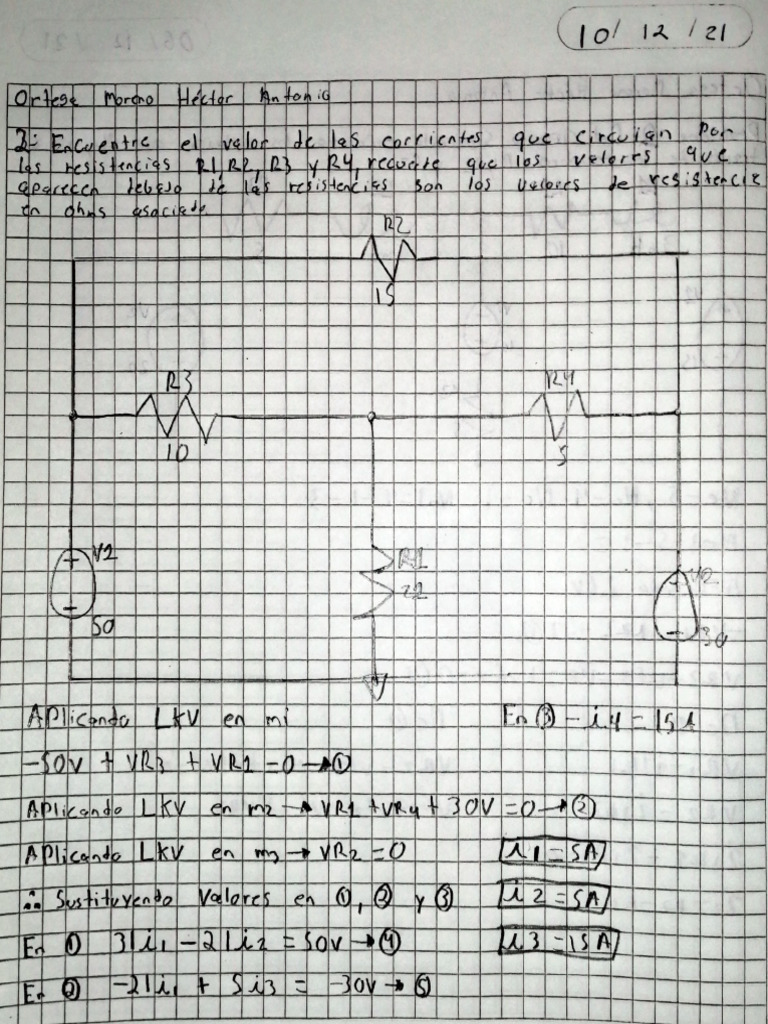 10/12/21
Ortega Moreno Héctor Antonio
2.- Encuentre el valor de las corrientes que circulan por
las resistencias R1, R2, R3 y R4, recuerde que los valores que
aparecen debajo de las resistencias son los valores de resistencia
en ohms asociado.
R2
15
R3
10
R4
5
V1
50
R1
V2
30
Aplicando LKV en m1
En ③ - i4 = 15A
-50V + VR3 + VR1 = 0 → ①
Aplicando LKV en m2 → VR1 + VR4 + 30V = 0 → ②
Aplicando LKV en m3 → VR2 = 0
i1 = 5A
∴ Sustituyendo Valores en ①, ② y ③
i2 = 5A
En ① 31i1 - 21i2 = 50V → ④
i3 = 15A
En ② -21i1 + 5i3 = -30V → ⑤